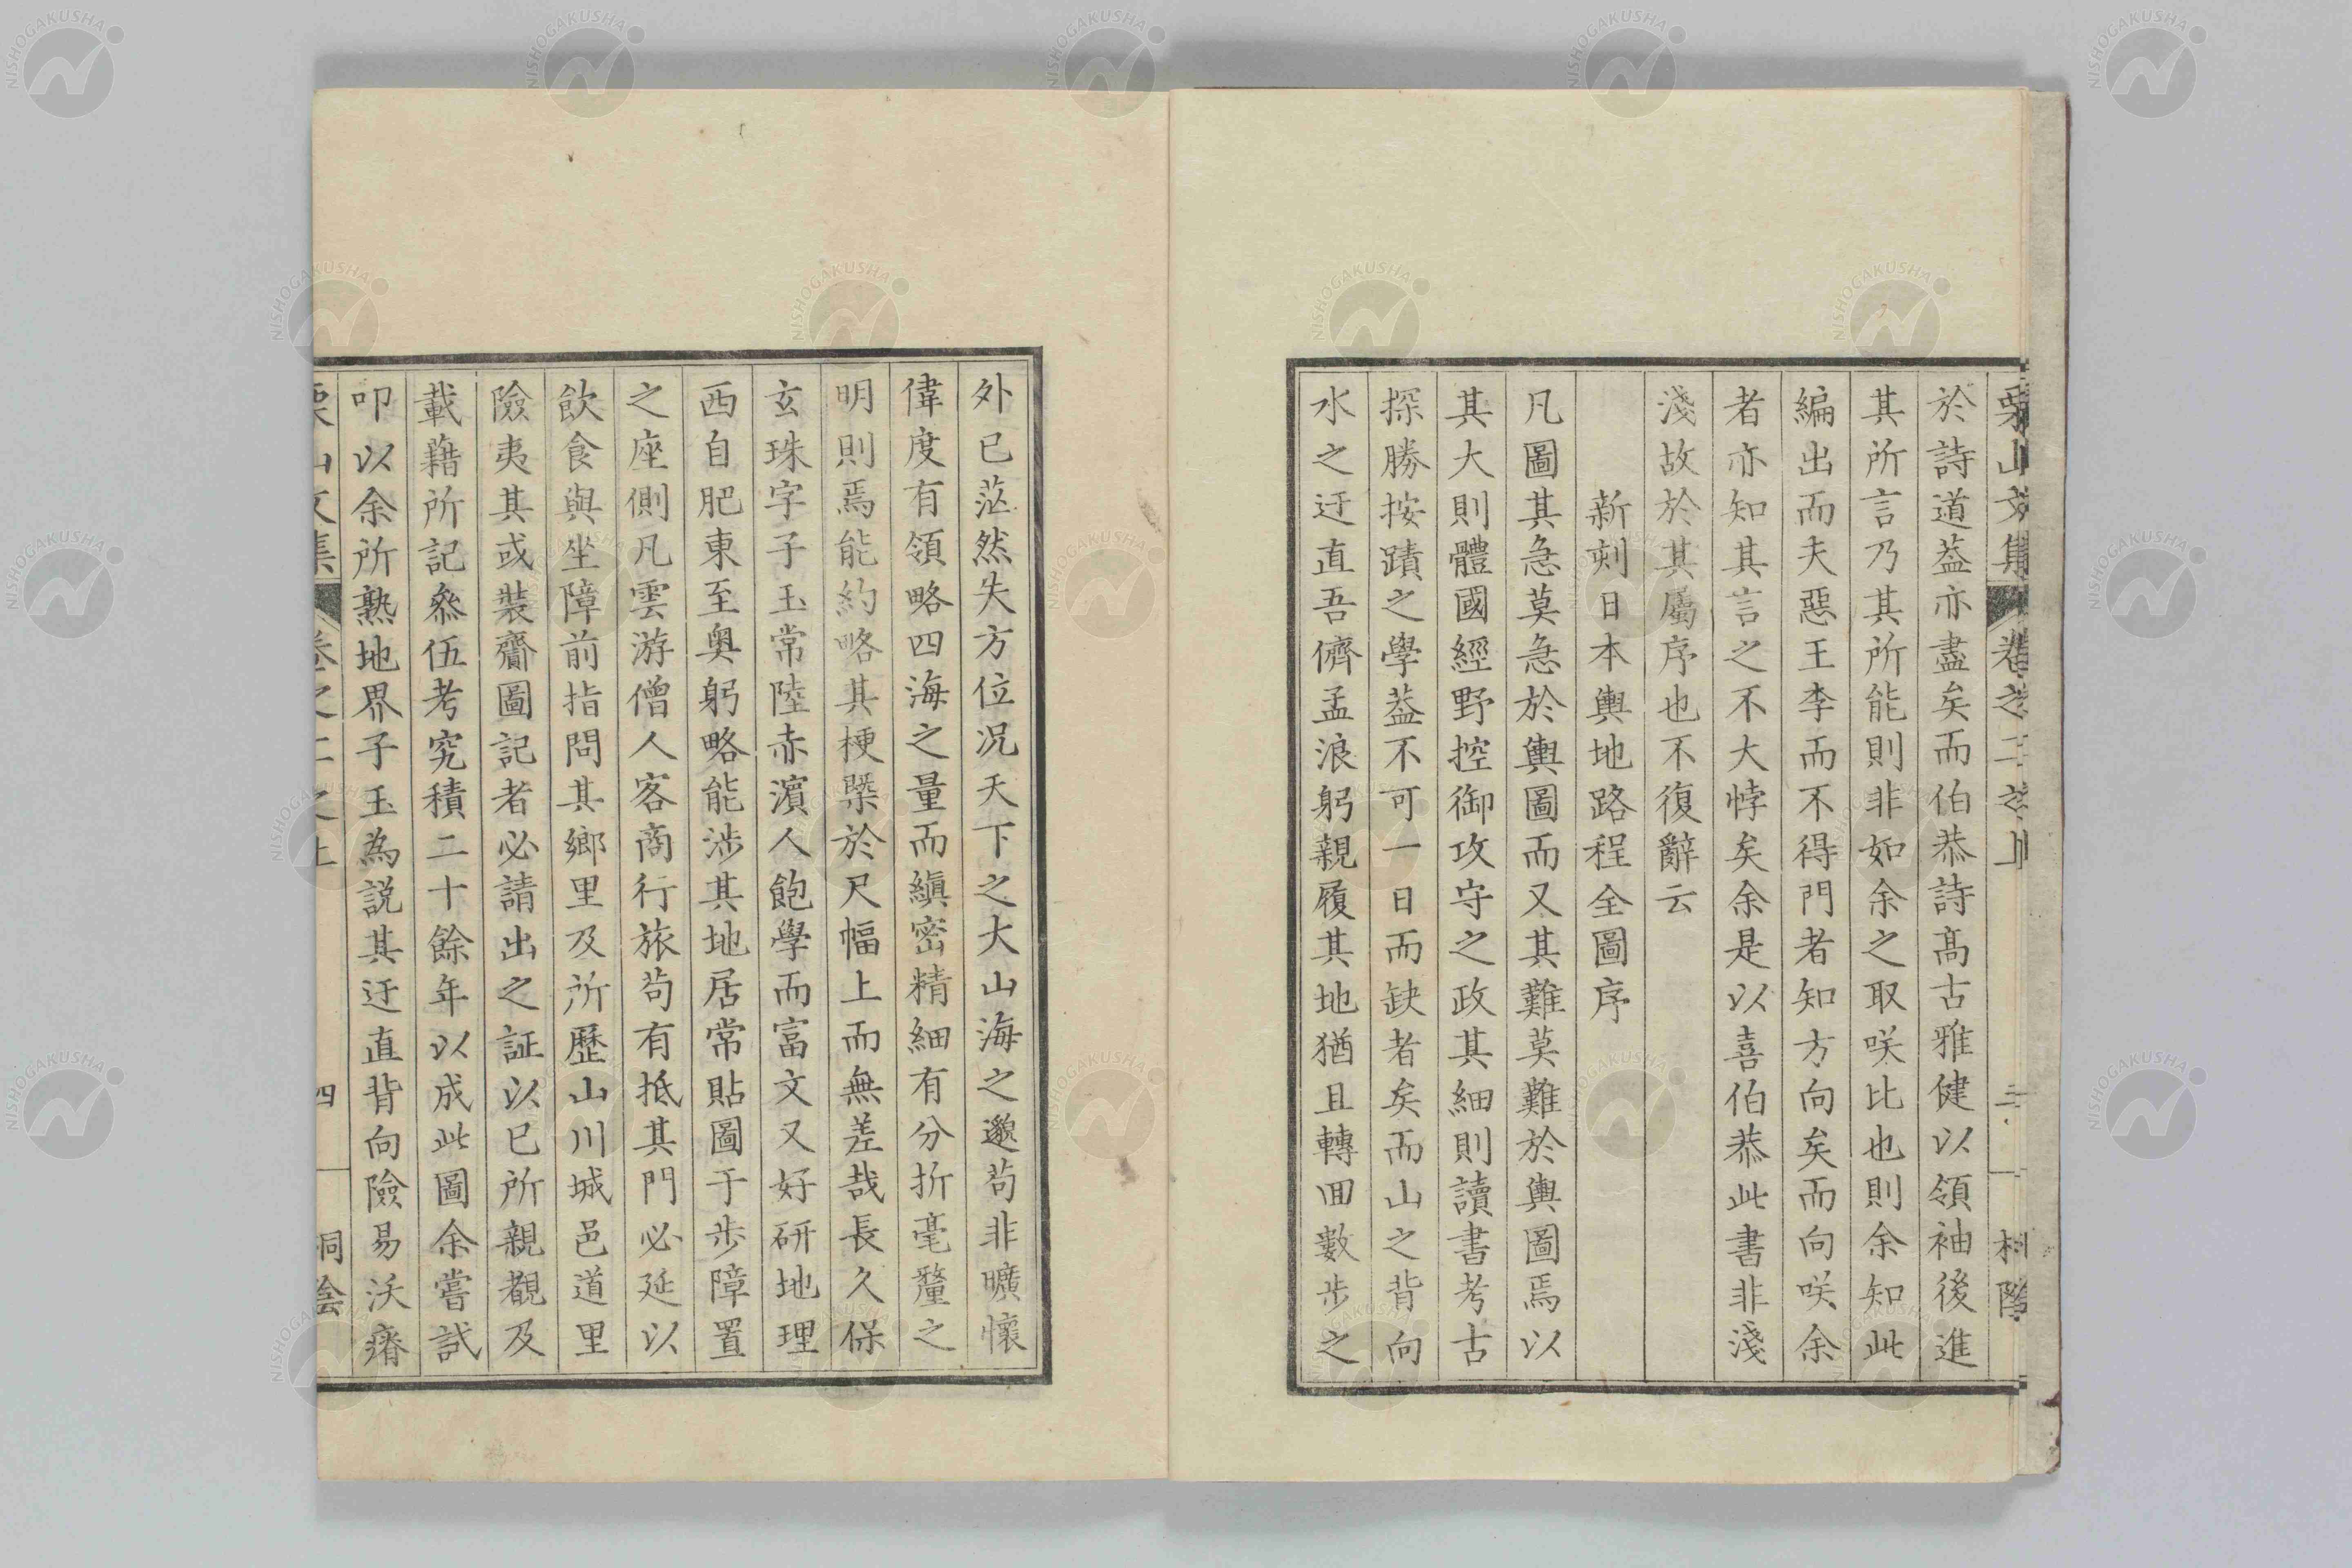 栗山文集 卷之二之上 三
於詩道葢亦盡矣而伯恭詩髙古雅健以領袖後進
其所言乃其所能則非如余之取咲比也則余知此
編出而夫惡王李而不得門者知方向矣而向咲余
者亦知其言之不大悖矣余是以喜伯恭此書非淺
淺故於其屬序也不復辭云
新刻日本輿地路程全圖序
凡圖其急莫急於輿圖而又其難莫難於輿圖焉以
其大則體國經野控御攻守之政其細則讀書考古
探勝按蹟之學葢不可一日而缺者矣而山之背向
水之迂直吾儕孟浪躬親履其地猶且轉田數步之
外已茫然失方位况天下之大山海之邈茍非曠懷
偉度有領略四海之量而縝密精細有分折毫釐之
明則焉能約略其梗槩於尺幅上而無差哉長久保
玄珠字子玉常陸赤濵人飽學而富文又好研地理
西自肥東至奥躬略能涉其地居常貼圖于步障置
之座側凡雲游僧人客商行旅茍有抵其門必延以
飲食與坐障前指問其鄉里及所歷山川城邑道里
險夷其或裝齎圖記者必請出之証以已所親覩及
載藉所記叅伍考究積二十餘年以成此圖余嘗試
叩以余所熟地界子玉為説其迂直背向險易沃瘠
栗山文集 卷之二之上 四 桐陰